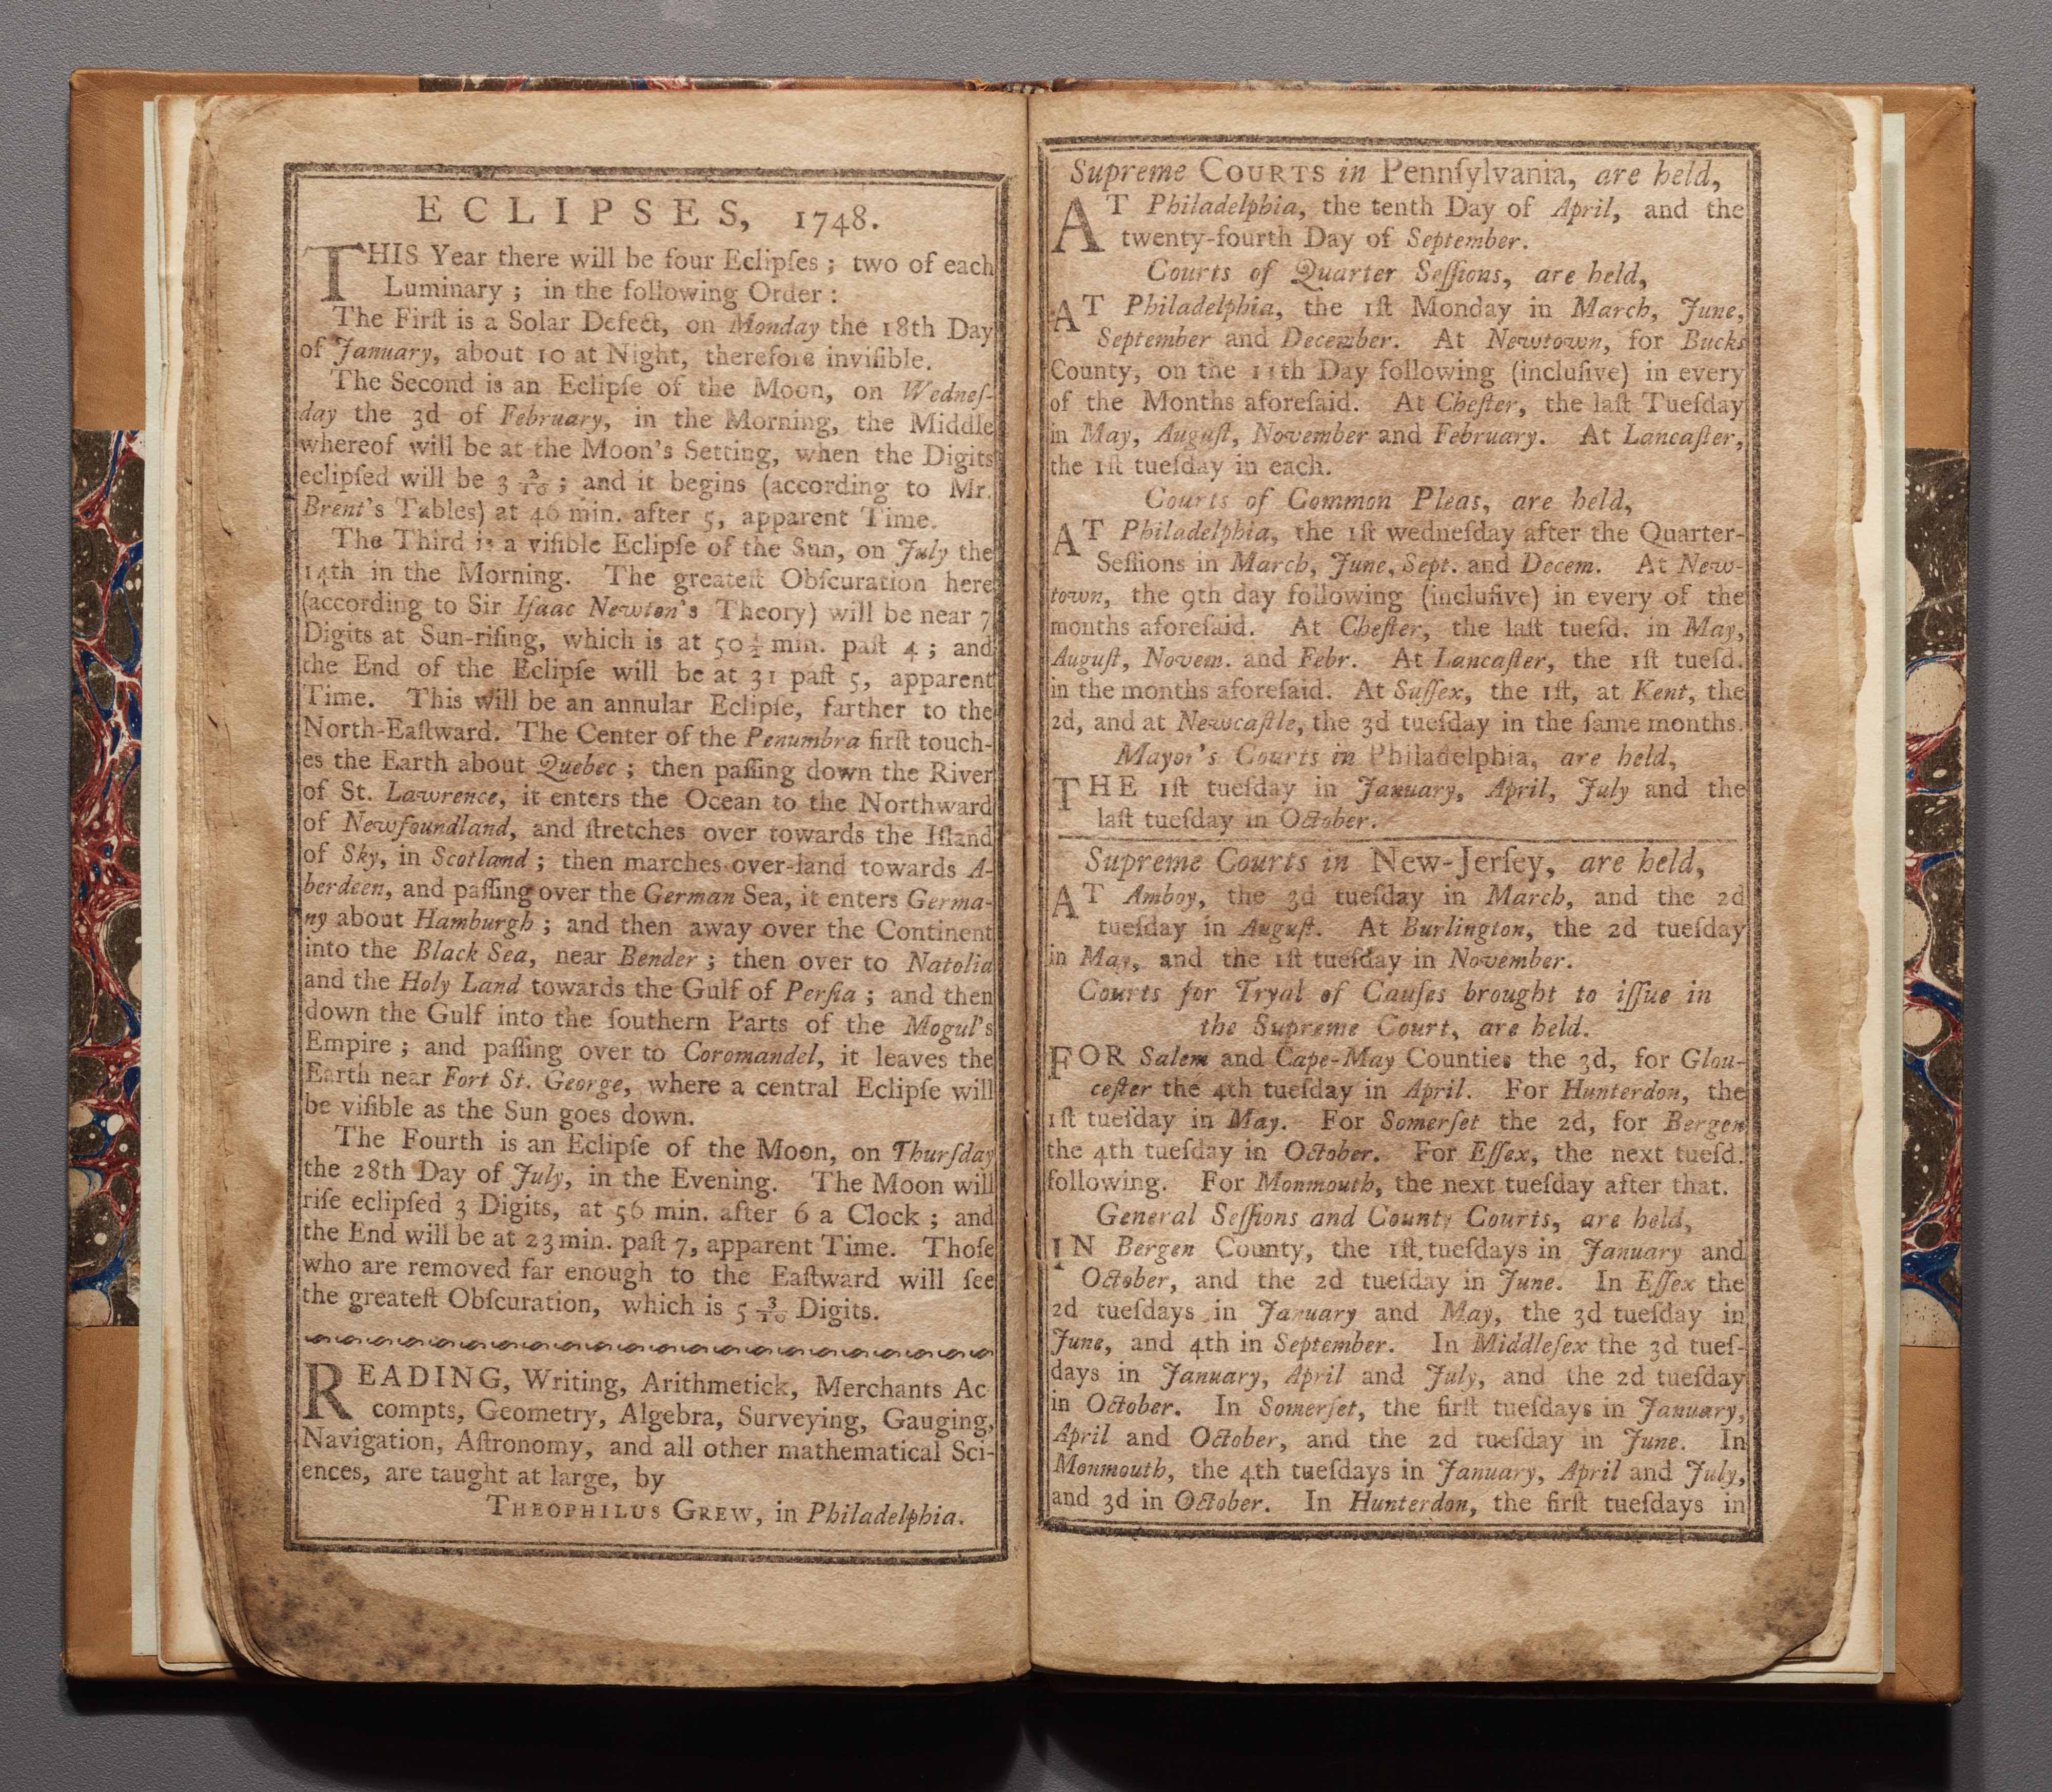 ECLIPSES, 1748.
THIS Year there will be four Eclipſes; two of each
Luminary; in the following Order:
The Firſt is a Solar Defect, on Monday the 18th Day
of January, about 10 at Night, therefore inviſible.
The Second is an Eclipſe of the Moon, on Wedneſ-
day the 3d of February, in the Morning, the Middle
whereof will be at the Moon's Setting, when the Digits
eclipſed will be 3 2/10; and it begins (according to Mr.
Brent's Tables) at 46 min. after 5, apparent Time.
The Third is a viſible Eclipſe of the Sun, on July the
14th in the Morning. The greateſt Obſcuration here
(according to Sir Iſaac Newton's Theory) will be near 7
Digits at Sun-riſing, which is at 50 1/2 min. paſt 4; and
the End of the Eclipſe will be at 31 paſt 5, apparent
Time. This will be an annular Eclipſe, farther to the
North-Eaſtward. The Center of the Penumbra firſt touch-
es the Earth about Quebec; then paſſing down the River
of St. Lawrence, it enters the Ocean to the Northward
of Newfoundland, and ſtretches over towards the Iſland
of Sky, in Scotland; then marches over-land towards A-
berdeen, and paſſing over the German Sea, it enters Germa-
ny about Hamburgh; and then away over the Continent
into the Black Sea, near Bender; then over to Natolia
and the Holy Land towards the Gulf of Perſia; and then
down the Gulf into the ſouthern Parts of the Mogul's
Empire; and paſſing over to Coromandel, it leaves the
Earth near Fort St. George, where a central Eclipſe will
be viſible as the Sun goes down.
The Fourth is an Eclipſe of the Moon, on Thurſday
the 28th Day of July, in the Evening. The Moon will
riſe eclipſed 3 Digits, at 56 min. after 6 a Clock; and
the End will be at 23 min. paſt 7, apparent Time. Thoſe
who are removed far enough to the Eaſtward will ſee
the greateſt Obſcuration, which is 5 3/10 Digits.
READING, Writing, Arithmetick, Merchants Ac
compts, Geometry, Algebra, Surveying, Gauging,
Navigation, Aſtronomy, and all other mathematical Sci-
ences, are taught at large, by
THEOPHILUS GREW, in Philadelphia.
Supreme COURTS in Pennſylvania, are held,
AT Philadelphia, the tenth Day of April, and the
twenty-fourth Day of September.
Courts of Quarter Seſſions, are held,
AT Philadelphia, the 1ſt Monday in March, June,
September and December. At Newtown, for Bucks
County, on the 11th Day following (incluſive) in every
of the Months aforeſaid. At Cheſter, the laſt Tueſday
in May, Auguſt, November and February. At Lancaſter,
the 1ſt tueſday in each.
Courts of Common Pleas, are held,
AT Philadelphia, the 1ſt wedneſday after the Quarter-
Seſſions in March, June, Sept. and Decem. At New-
town, the 9th day following (incluſive) in every of the
months aforeſaid. At Cheſter, the laſt tueſd. in May,
Auguſt, Novem. and Febr. At Lancaſter, the 1ſt tueſd.
in the months aforeſaid. At Suſſex, the 1ſt, at Kent, the
2d, and at Newcaſtle, the 3d tueſday in the ſame months.
Mayor's Courts in Philadelphia, are held,
THE 1ſt tueſday in January, April, July and the
laſt tueſday in October.
Supreme Courts in New-Jerſey, are held,
AT Amboy, the 3d tueſday in March, and the 2d
tueſday in Auguſt. At Burlington, the 2d tueſday
in May, and the 1ſt tueſday in November.
Courts for Tryal of Cauſes brought to iſſue in
the Supreme Court, are held.
FOR Salem and Cape-May Counties the 3d, for Glou-
ceſter the 4th tueſday in April. For Hunterdon, the
1ſt tueſday in May. For Somerſet the 2d, for Bergen
the 4th tueſday in October. For Eſſex, the next tueſd.
following. For Monmouth, the next tueſday after that.
General Seſſions and County Courts, are held,
IN Bergen County, the 1ſt tueſdays in January and
October, and the 2d tueſday in June. In Eſſex the
2d tueſdays in January and May, the 3d tueſday in
June, and 4th in September. In Middleſex the 3d tueſ-
days in January, April and July, and the 2d tueſday
in October. In Somerſet, the firſt tueſdays in January,
April and October, and the 2d tueſday in June. In
Monmouth, the 4th tueſdays in January, April and July,
and 3d in October. In Hunterdon, the firſt tueſdays in